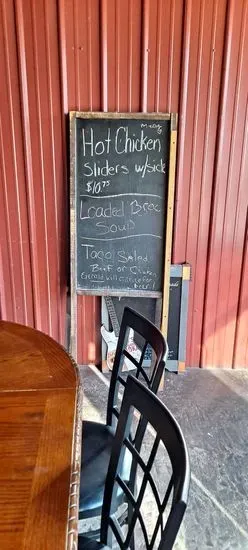 Hot Chicken
Sliders w/side
$10.75
Loaded Broc
Soup
Taco Salad
Beef or Chicken